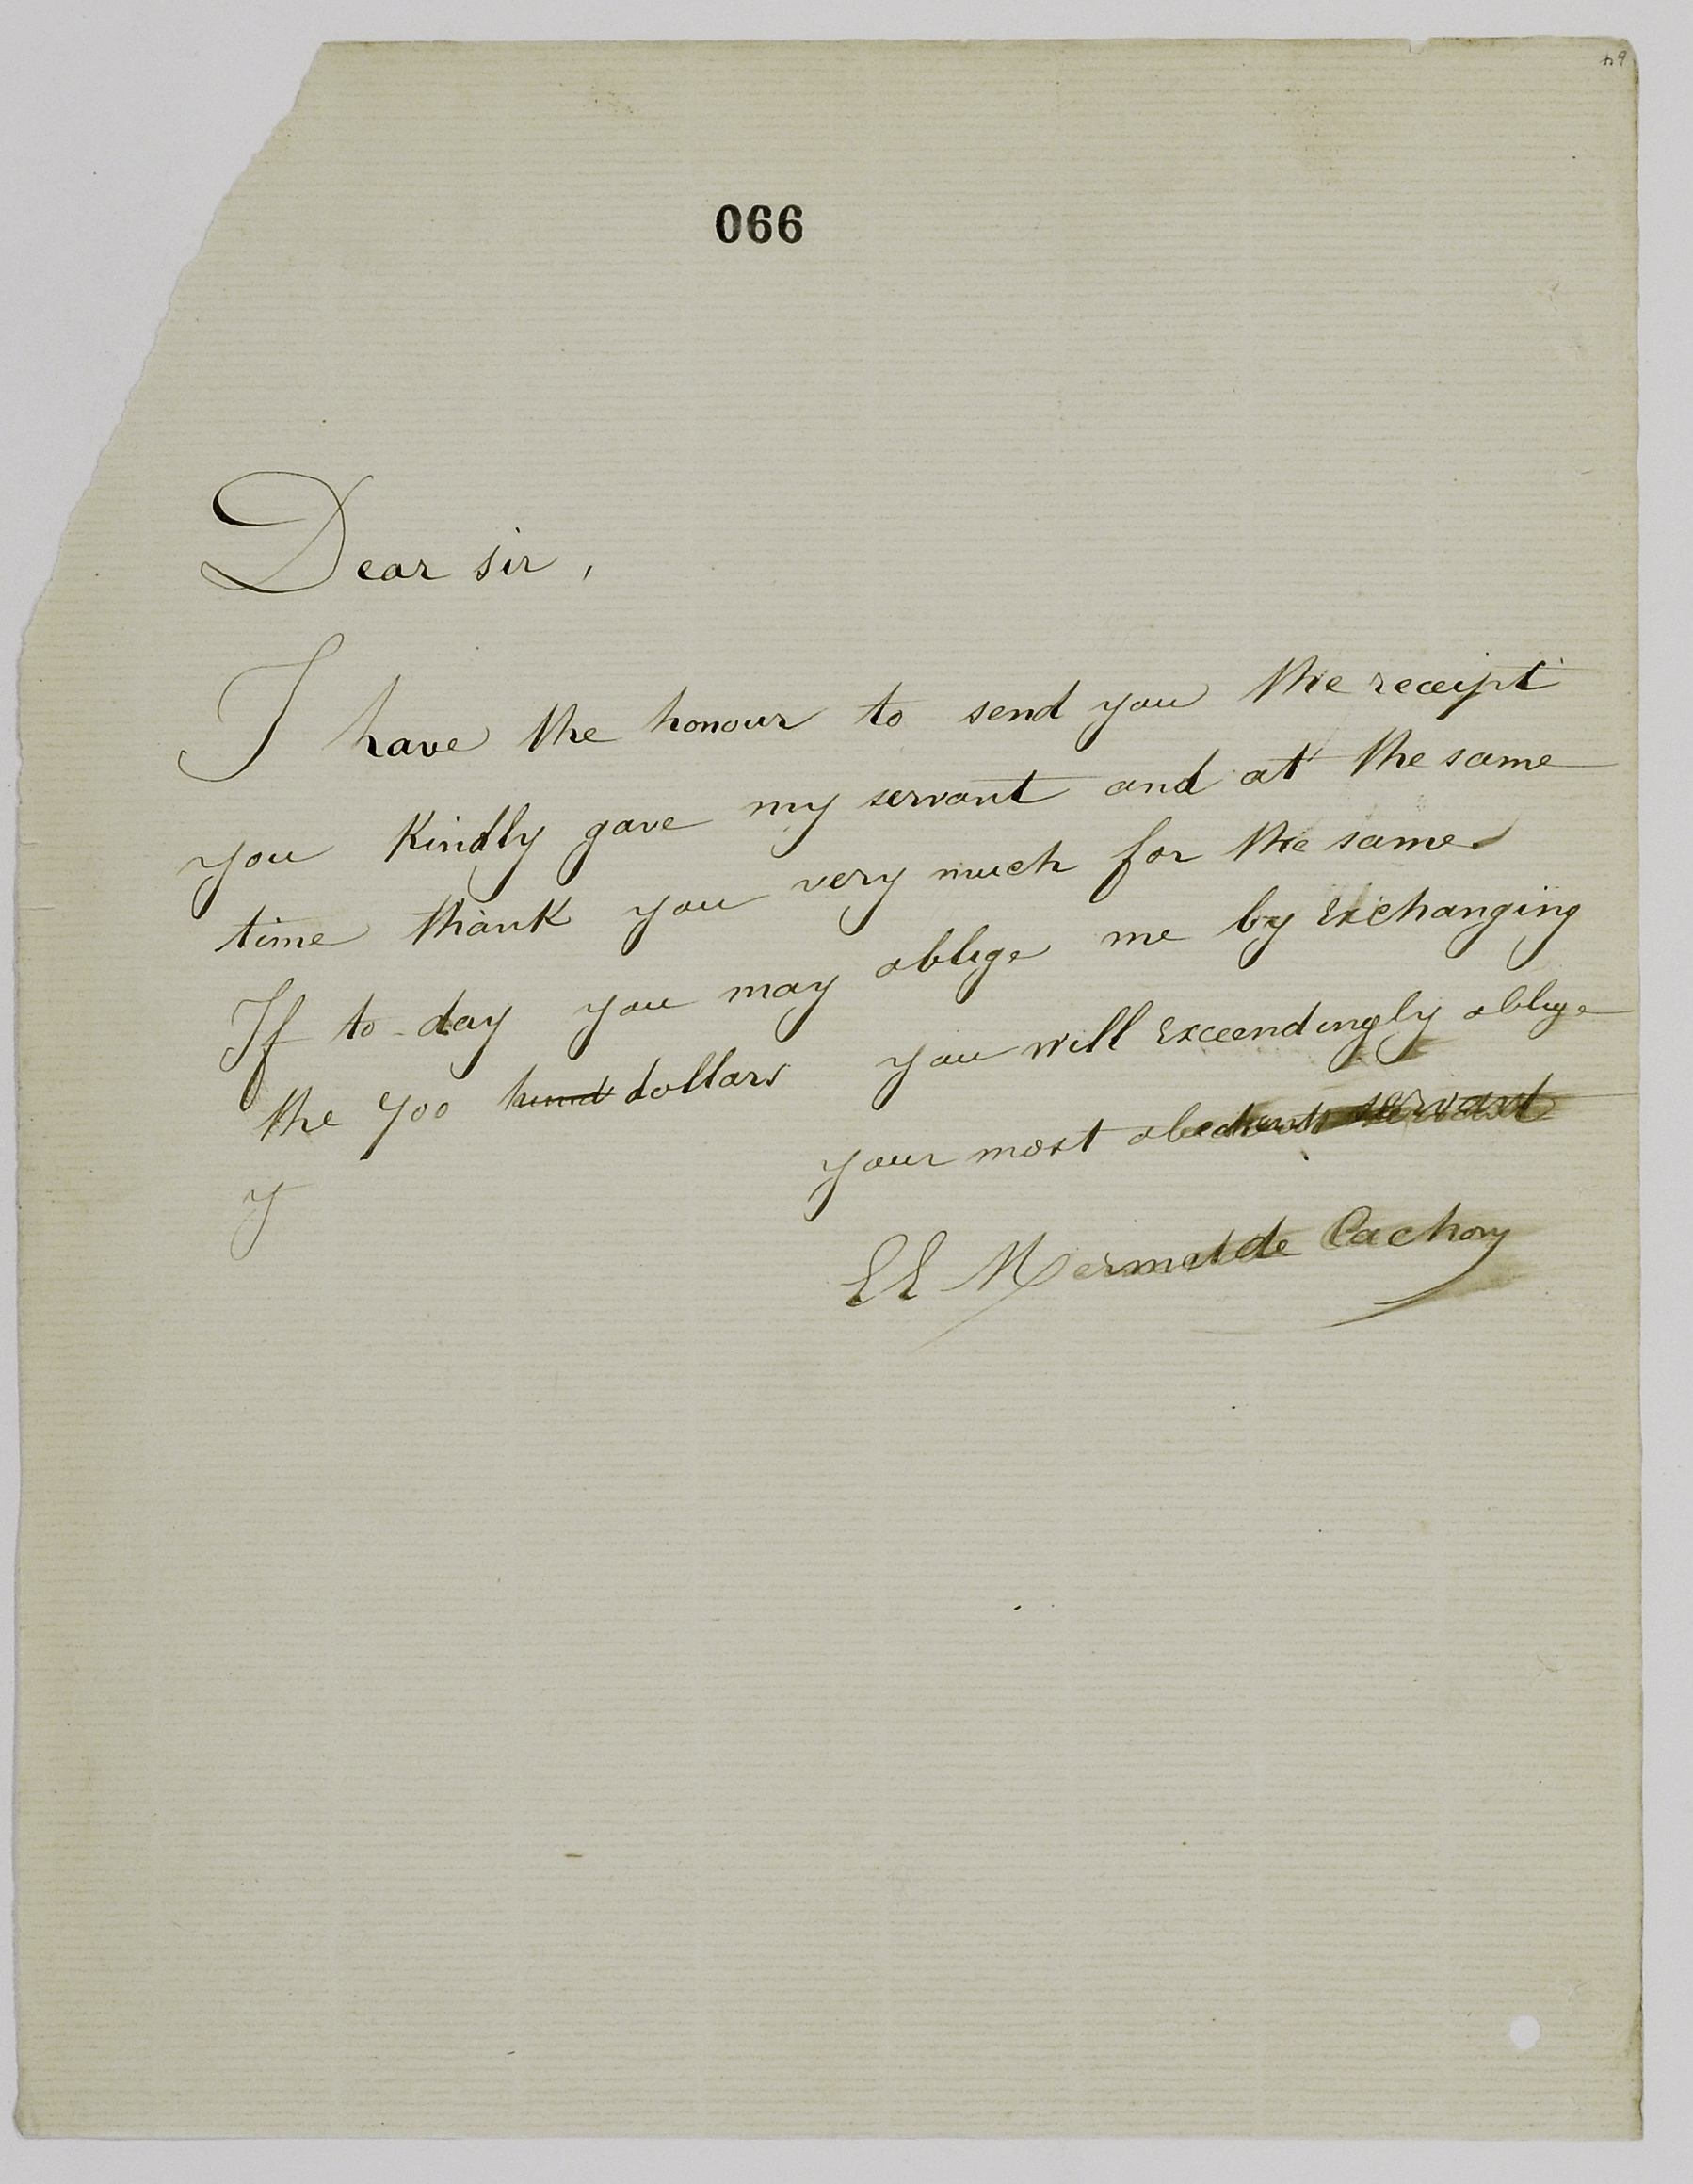 64
066
Dear sir,
I have the honour to send you the receipt
you kindly gave my servant and at the same
time thank you very much for the same
If to-day you may oblige me by exchanging
the 700 hund dollars you will exceendingly oblige
your most obedient servant
y